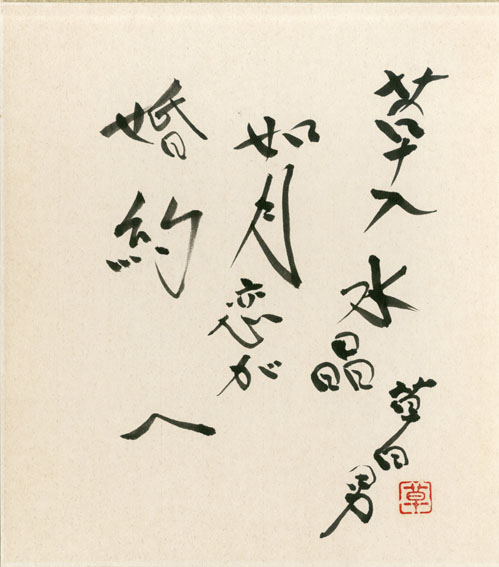 草入水晶
如月恋が
婚約へ
草田男
草